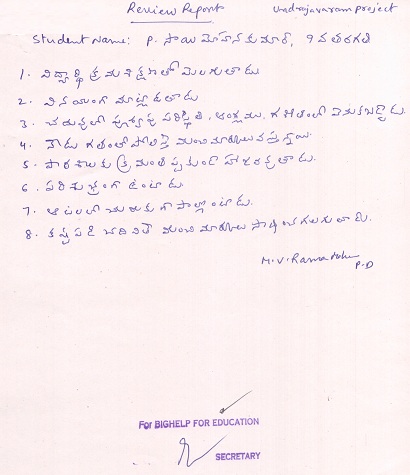 Review Report
Undrajavaram project
Student Name: P. సాయి మోహన కుమార్, 9వ తరగతి
1. విద్యార్థి క్రమశిక్షణతో మెలుగుతాడు
2. వినయంగా మాట్లాడతాడు
3. చదువులో పూర్వపు పరిస్థితి, ఆంగ్లము, గణితంలో వెనుకబడ్డాడు
4. గతంలో పోలిస్తే మంచి మార్పులు వస్తున్నాయి.
5. పాఠశాలకు క్రమం తప్పకుండా హాజరవుతాడు.
6. పరిశుభ్రంగా ఉంటాడు
7. ఆటలలో చురుకుగా పాల్గొంటాడు.
8. కష్టపడి చదివితే మంచి మార్కులు సాధించగలుగుతాడు.
M.V. Rama
P.D
For BIGHELP FOR EDUCATION
SECRETARY